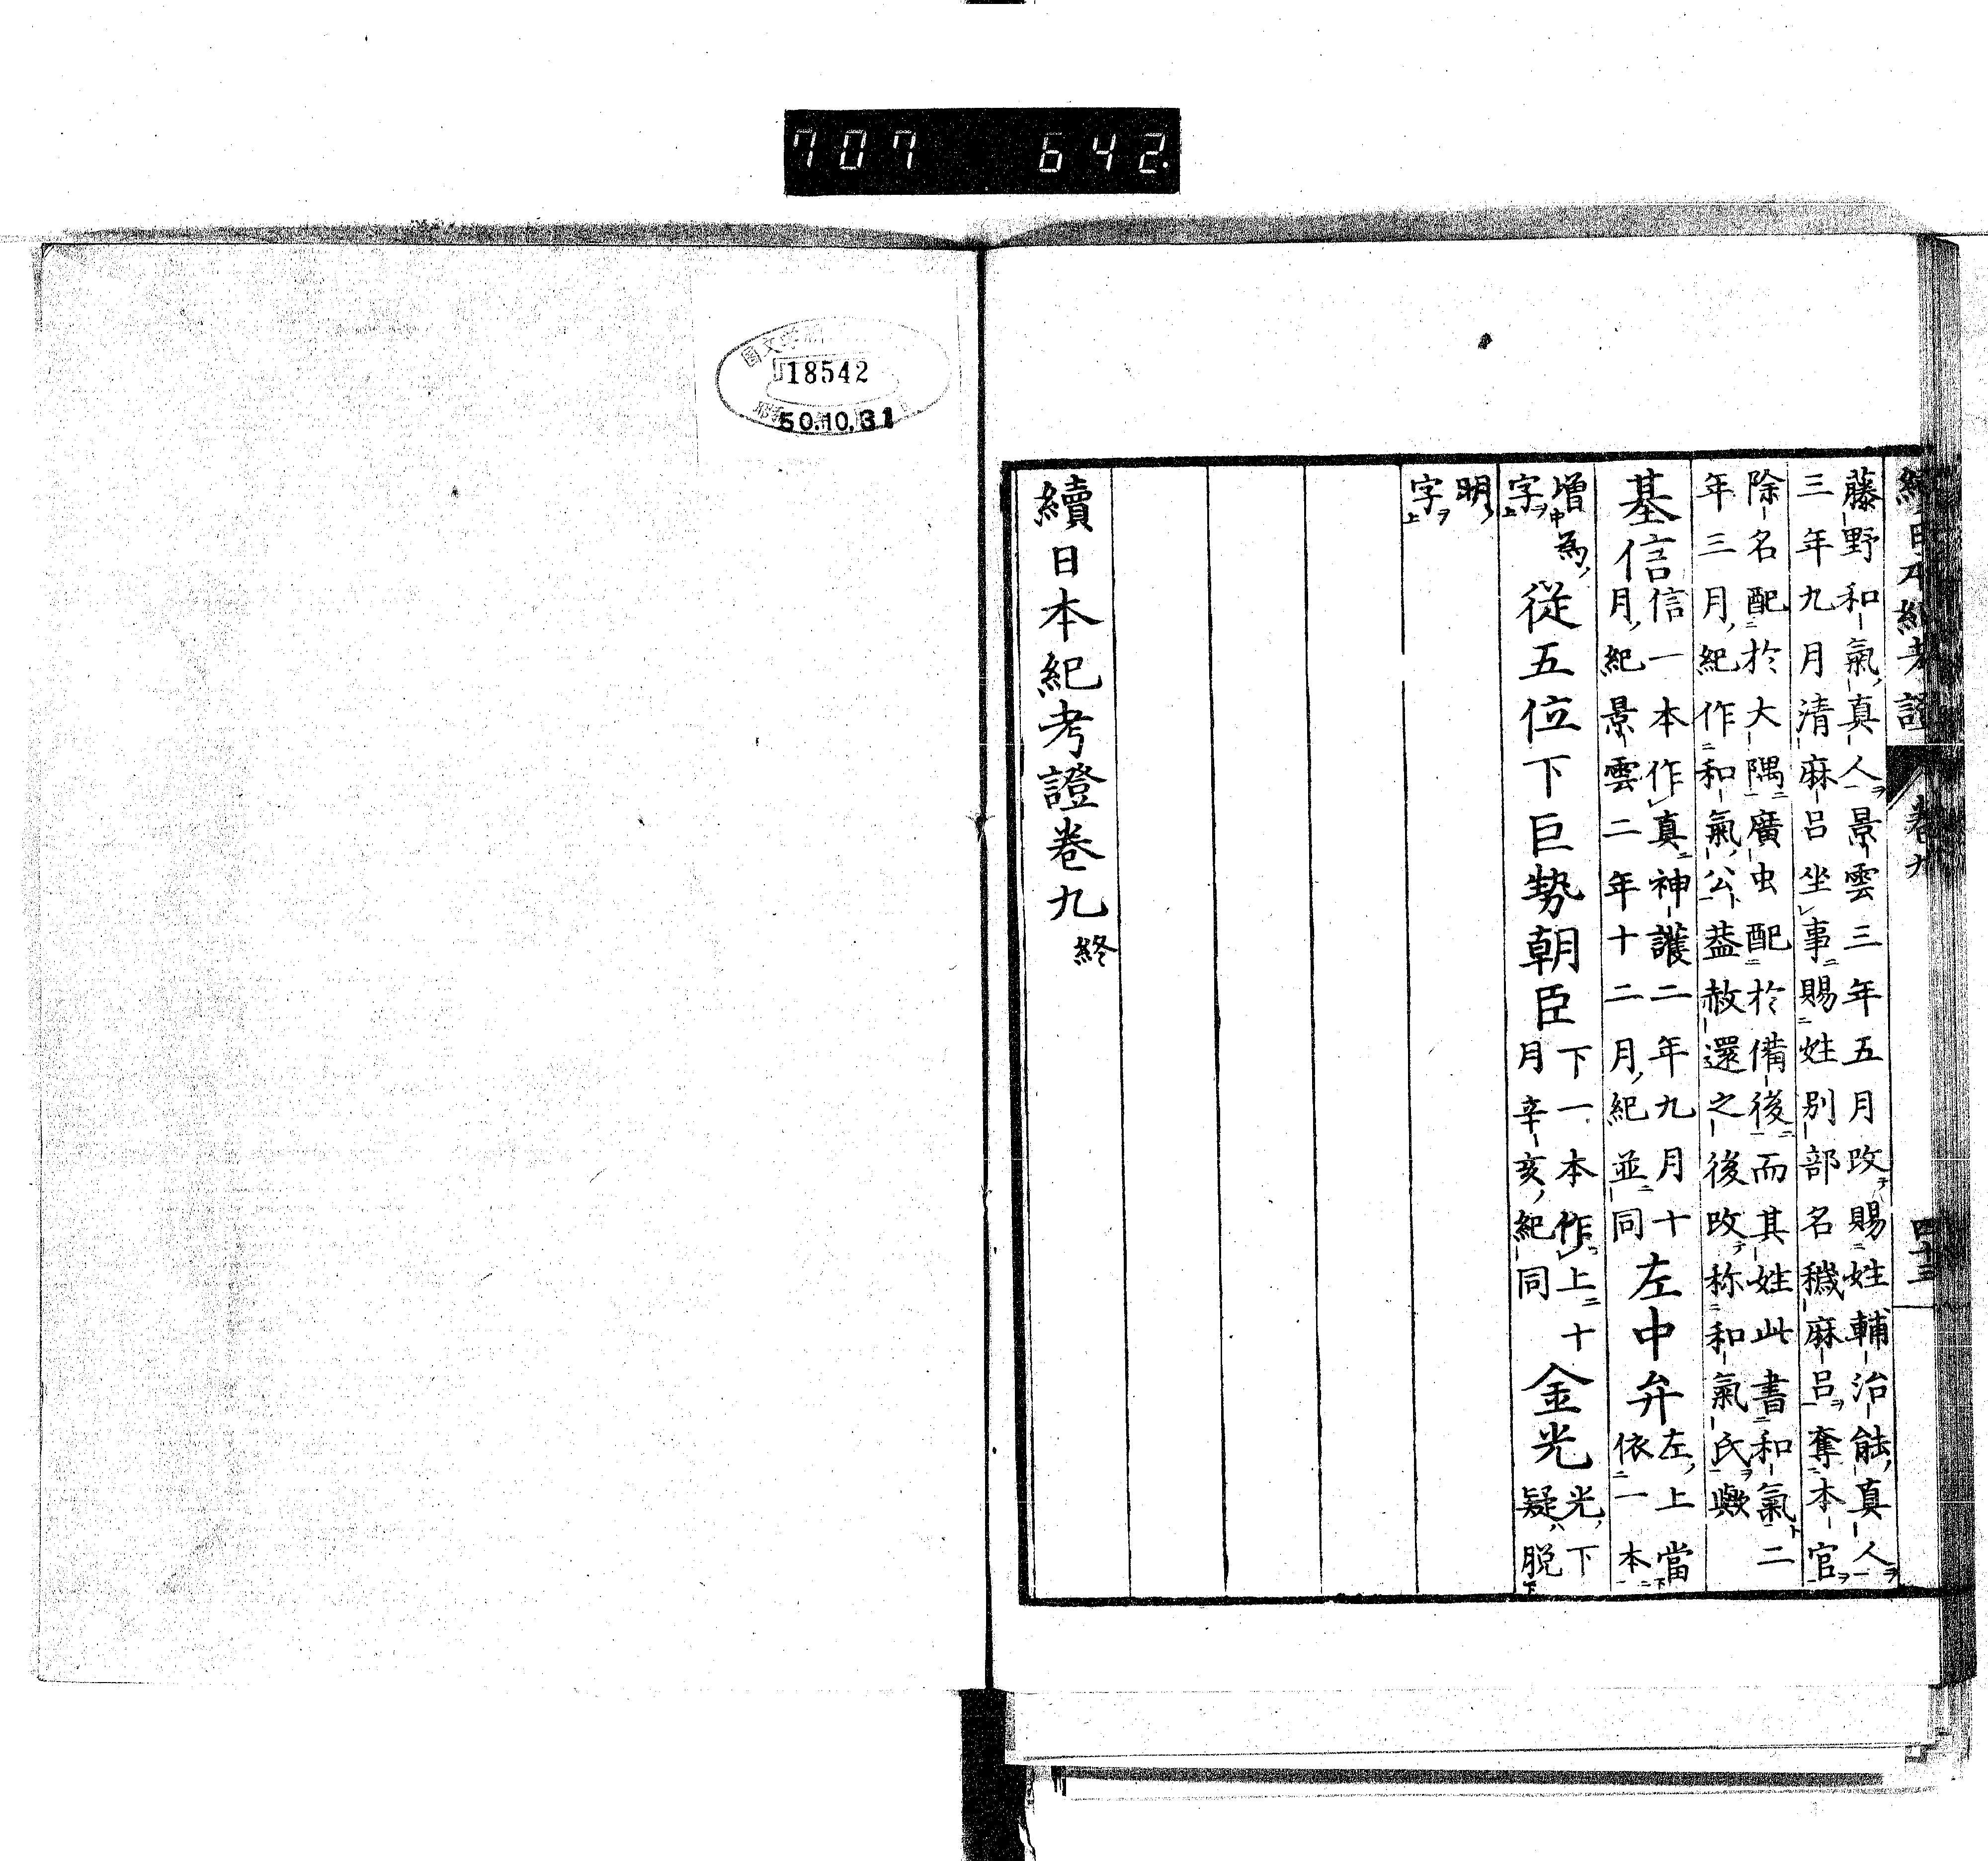 707 642
國文学
18542
50.10.31
續日本紀考證 卷九 四十三
藤野和氣真人景雲三年五月改賜姓輔治能真人
三年九月清麻呂坐事賜姓別部名穢麻呂奪本官
除名配於大隅廣虫配於備後而其姓此書和氣二
年三月紀作和氣公蓋赦還之後改称和氣氏歟
基信 信一本作真神護二年九月十
月紀景雲二年十二月紀並同 左中弁 左上當
依一本
增為
字 從五位下巨勢朝臣 下一本作上二十
月辛亥紀同 金光 光下
疑脱
明
字
續日本紀考證卷九 終